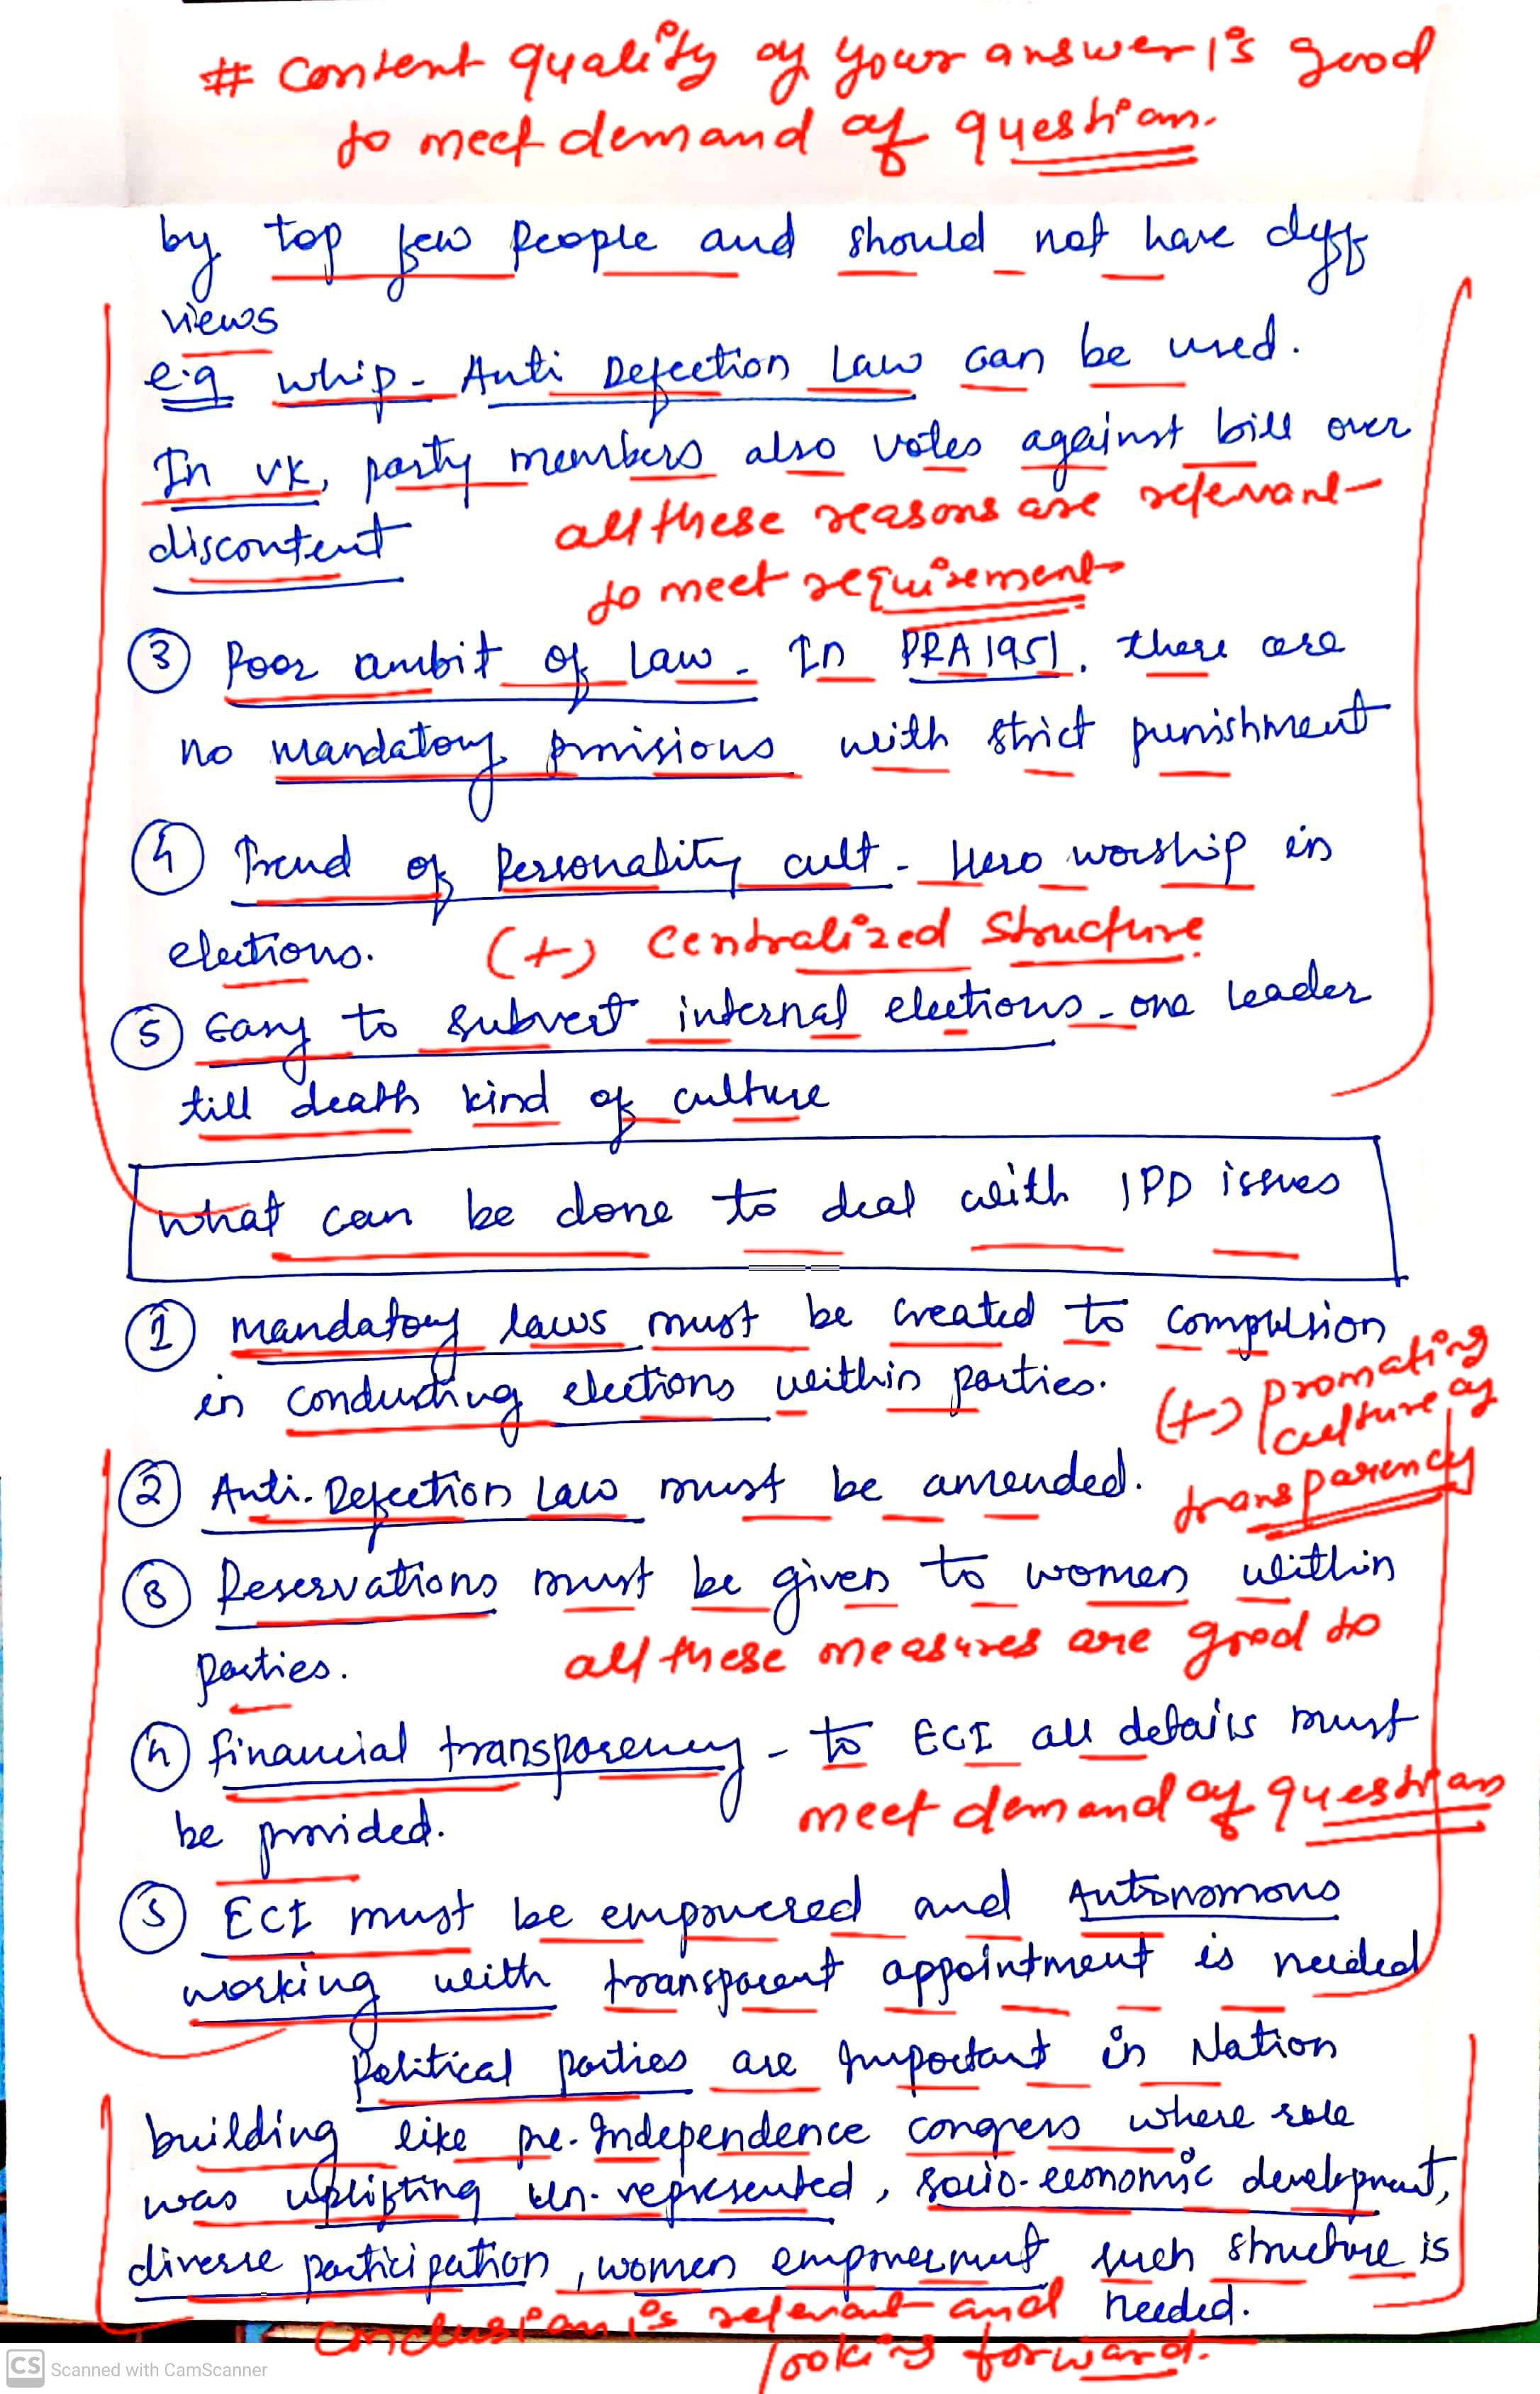 # Content quality of your answer is good
to meet demand of question.
by top few people and should not have diff
views
e.g whip - Anti Defection Law can be used.
In UK, party members also votes against bill over
discontent
all these reasons are relevant
to meet requirement
③ Poor ambit of Law - In PRA 1951. there are
no mandatory provisions with strict punishment
④ Trend of Personality cult - Hero worship in
elections.
(+) Centralized Structure
⑤ Easy to subvert internal elections - one leader
till death kind of culture
What can be done to deal with IPD issues
① mandatory laws must be created to compulsion
in conducting elections within parties.
(+) promoting
culture of
transparency
② Anti-Defection Law must be amended.
③ Reservations must be given to women within
parties.
all these measures are good to
④ financial transparency - to ECI all details must
be provided.
meet demand of question
⑤ ECI must be empowered and Autonomous
working with transparent appointment is needed
Political parties are important in Nation
building like pre-Independence congress where role
was uplifting un-represented, socio-economic development,
diverse participation, women empowerment such structure is
needed.
Conclusion is relevant and
looking forward.
CS Scanned with CamScanner